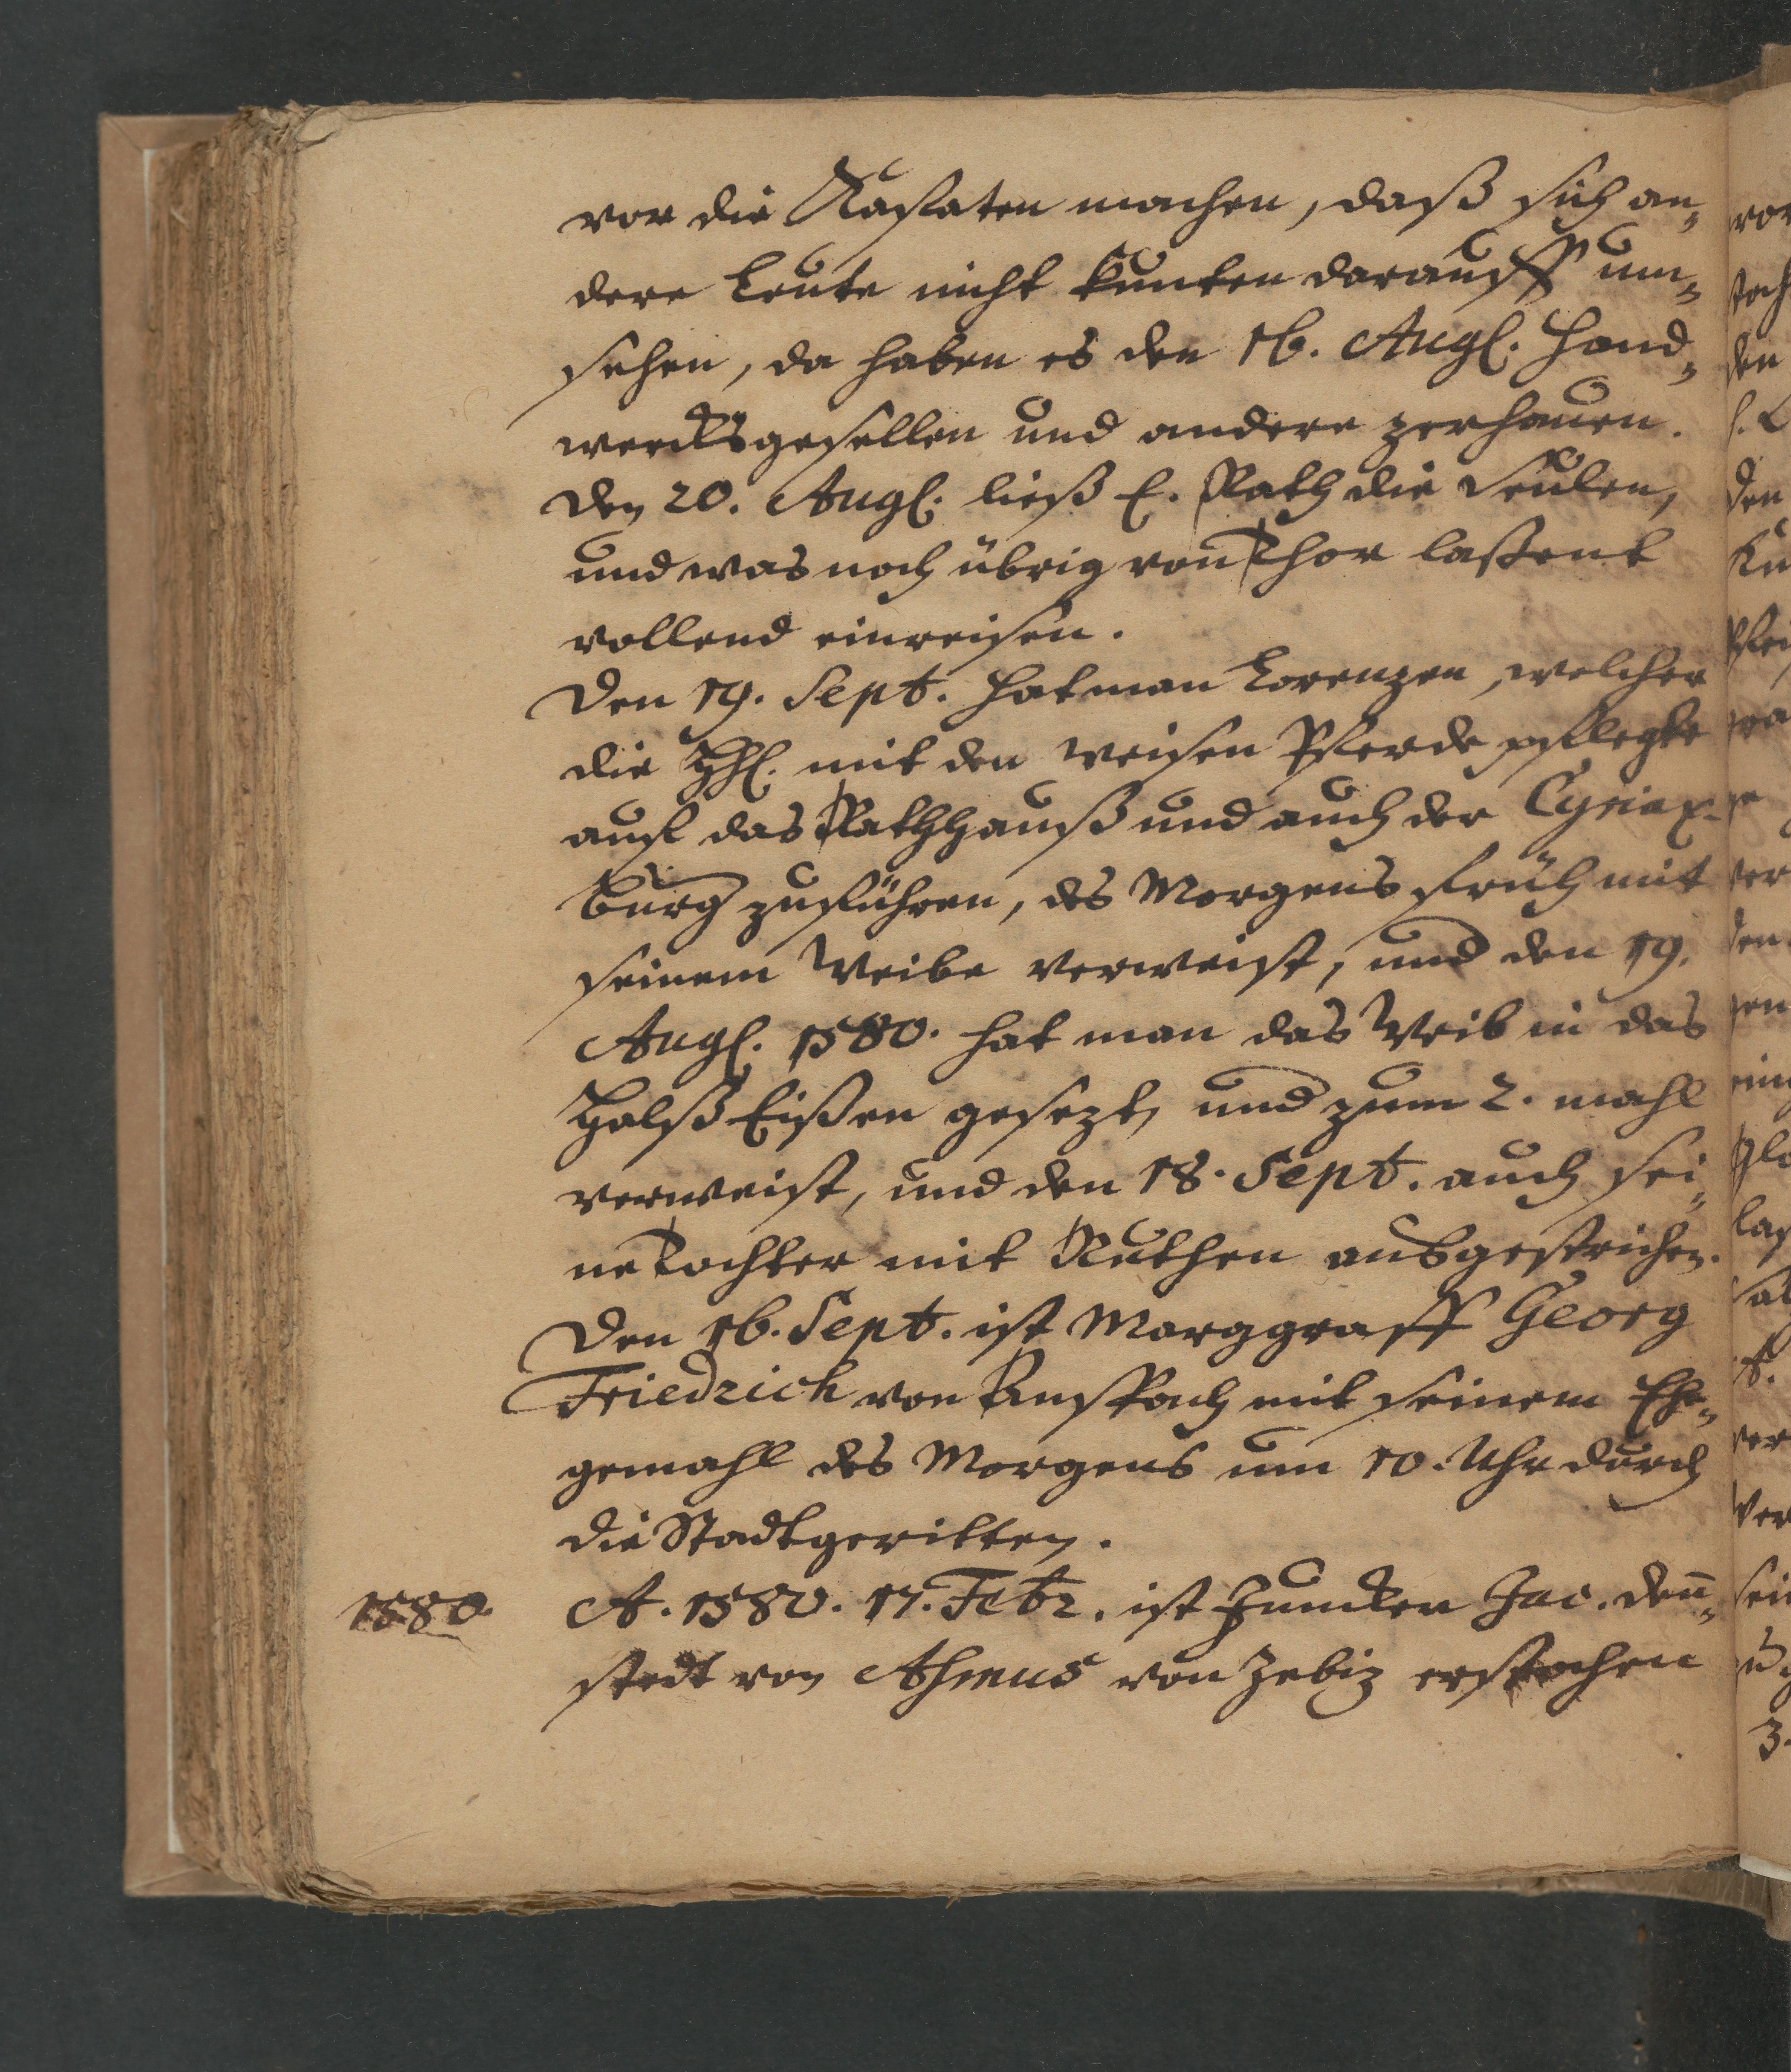 vor die Rasaten machen, daß sich an„
dere Leute nicht kunten darauff um„
sehen, da haben es den 16. Augs. Hand„
werksgesellen und andere zerhauen.
Den 20. Augs. ließ E. Rath die Seulen,
und was noch übrig von Thor
vollend einreisen.
Den 19. Sept. hat man Lorenzen, welcher
die HH. mit den weisen Pferde pflegte
auf das Rathhauß und auch der Cyriax-
burg zuführen, des Morgens früh mit
seinem Weibe verweist, und den 19.
Augs. 1580. hat man das Weib in das
Halß Eißen gesezt, und zum 2. mahl
verweist, und den 18. Sept. auch sei„
ne Tochter mit Ruthen ausgestrichen.
Den 16. Sept. ist Marggraff Georg
Friedrich von Anspach mit seinem Ehe„
gemahl des Morgens um 10. Uhr durch
die Stadt geritten.
1580. A. 1580. 17. Febr. ist Juncker Jac. den̄„
stedt von Asmus von Zebiz erstochen